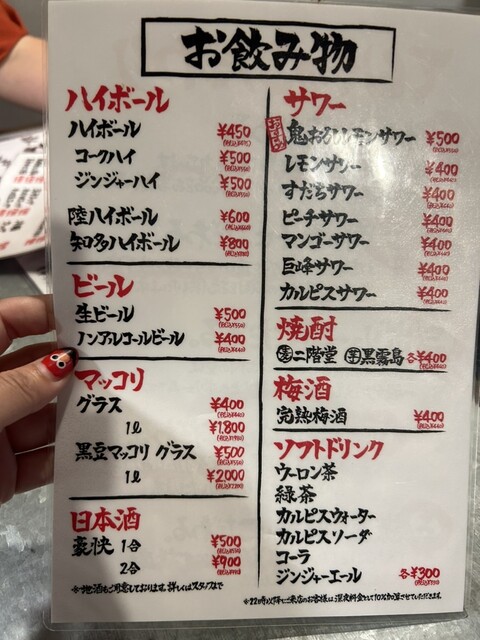 お飲み物
ハイボール
ハイボール ¥450
コークハイ ¥500
ジンジャーハイ ¥500
陸ハイボール ¥600
知多ハイボール ¥800
ビール
生ビール ¥500
ノンアルコールビール ¥400
マッコリ
グラス ¥400
1ℓ ¥1,800
黒豆マッコリ グラス ¥500
1ℓ ¥2,000
日本酒
豪快 1合 ¥500
2合 ¥900
※地酒もご用意しております。詳しくはスタッフまで
サワー
鬼おろしレモンサワー ¥500
レモンサワー ¥400
すだちサワー ¥400
ピーチサワー ¥400
マンゴーサワー ¥400
巨峰サワー ¥400
カルピスサワー ¥400
焼酎
麦二階堂 芋黒霧島 各¥400
梅酒
完熟梅酒 ¥400
ソフトドリンク
ウーロン茶
緑茶
カルピスウォーター
カルピスソーダ
コーラ
ジンジャーエール 各¥300
※22時以降でご来店のお客様は深夜料金として10%加算させていただきます。